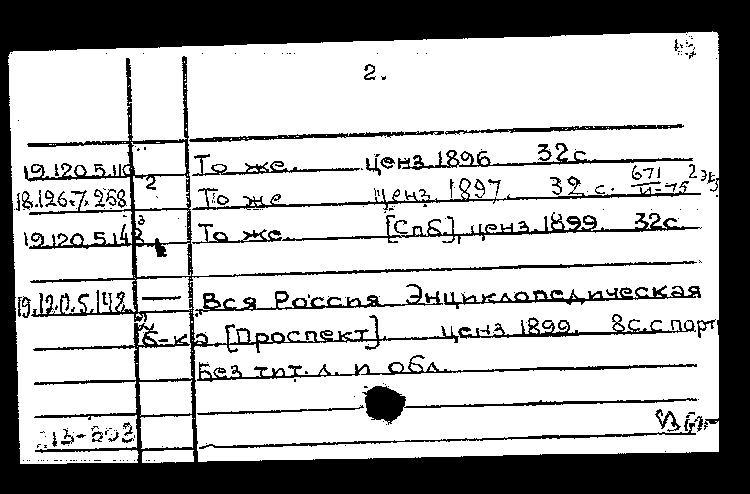 2.
19.120.5.110 То же. ценз. 1896 32 с.
18.126.7.268 2 То же ценз. 1897. 32 с. 671 2 экз
19.120.5.148 3 То же. [Спб.], ценз. 1899. 32 с.
19.120.5.148 — Вся Россия Энциклопедическая
б-ка. [Проспект]. ценз. 1899. 8 с. с порт
Без тит. л. и обл.
213-303